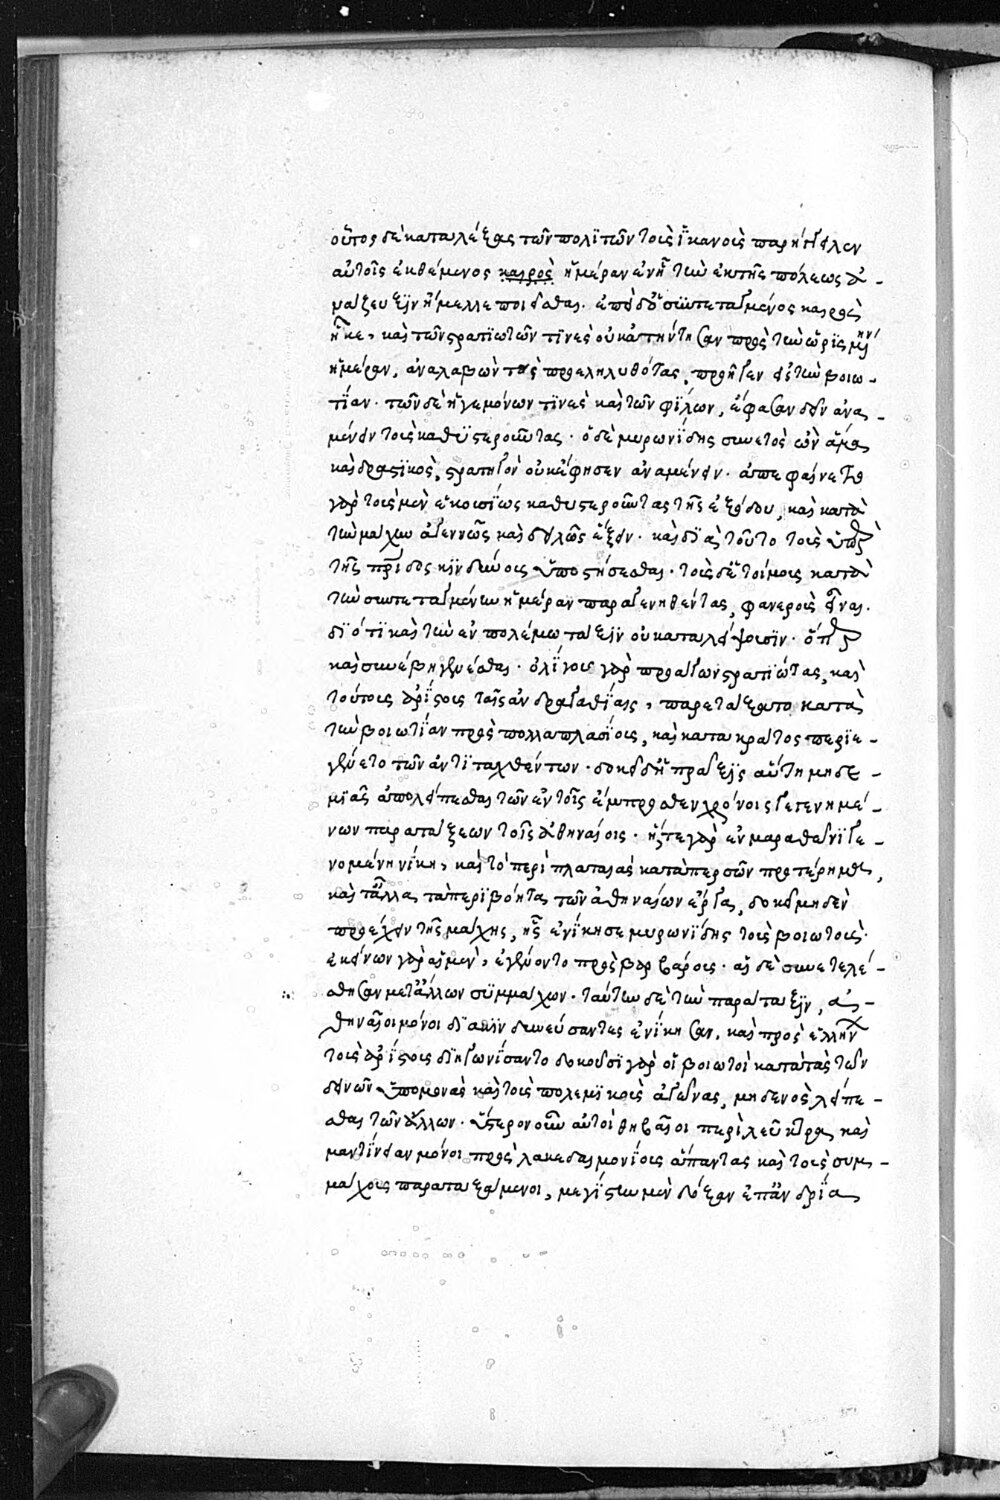 οὗτος δὲ καταλέξας τῶν πολϊτῶν τοὺς ἱκανοὺς παρήγγειλεν
αὐτοῖς ἐκθέμενος καιρὸς ἡμέραν ἐν ἧ τὴν ἐκ τῆς πόλεως ἀ-
νάζευξϊν ἤμελλε ποιεῖσθαι. ἐπεὶ δ' ὁ σϋντεταγμένος καιρὸς
ἧκε, καὶ τῶν στρατϊωτῶν τϊνὲς οὐ κατήντησαν πρὸς τὴν ὡρϊσμένην
ἡμέραν, ἀναλαβὼν τοὺς προεληλυθότας, προῆγεν εἰς τὴν βοιω-
τΐαν. τῶν δὲ ἡγεμόνων τϊνὲς καὶ τῶν φΐλων, ἔφασαν δεῖν ἀνα-
μένειν τοὺς καθϋστεροῦντας. ὁ δὲ μυρωνΐδης συνετὸς ὢν ἅμα
καὶ δραστϊκὸς, στρατηγὸν οὐκ ἔφησεν ἀναμένειν. ἀπεφαίνετο
γὰρ τοὺς μὲν ἑκουσΐως καθυστεροῦντας τῆς ἐξόδου, καὶ κατὰ
τὴν μάχην ἀγεννῶς καὶ δειλῶς ἕξειν. καὶ δϊὰ τοῦτο τοὺς ὑπὲρ
τῆς πρίδος κϊνδύνους ὑποστήσεσθαι. τοὺς δ' ἑτοίμους κατὰ
τὴν συντεταγμένην ἡμέραν παραγενηθέντας, φανεροὺς εἶναι.
δϊότϊ καὶ τὴν ἐν πολέμω τάξϊν οὐ καταλείψουσϊν. ὅπερ
καὶ συνέβη γενέσθαι. ὀλΐγους γὰρ προαγων στρατϊώτας, καὶ
τούτους ἀρΐστους ταῖς ἀνδραγαθΐαις, παρετάξατο κατὰ
τὴν βοιωτΐαν πρὸς πολλαπλασΐους, καὶ κατα κράτος περϊε-
γένετο τῶν ἀντϊταχθέντων. δοκεῖ δ' ἡ πράξϊς αὕτη μηδε-
μϊᾶς ἀπολείπεσθαι τῶν ἐν τοῖς ἔμπροσθεν χρόνοις γεγενημέ-
νων παρατάξεων τοῖς ἀθηναίοις. ἥ τε γὰρ ἐν μαραθῶνϊ γε-
νομένη νίκη, καὶ τὸ περὶ πλαταιὰς κατὰ περσῶν προτέρημα,
καὶ τἄλλα τὰ περϊβόητα τῶν ἀθηναίων ἔργα, δοκεῖ μηδὲν
προέχειν τῆς μάχης, ἧς ἐνΐκησε μυρωνΐδης τοὺς βοιωτούς.
ἐκείνων γὰρ αἱ μὲν, ἐγένοντο πρὸς βαρβάρους. αἱ δὲ συνετελέ-
σθησαν μετ' ἄλλων σϋμμάχων. ταύτην δὲ τὴν παράταξϊν, ἀ-
θηναῖοι μόνοι δϊακϊνδυνεύσαντες ἐνΐκησαν, καὶ πρὸς ἑλλήν
τοὺς ἀρΐστους δϊηγωνΐσαντο δοκοῦσϊ γὰρ οἱ βοιωτοὶ κατὰ τὰς τῶν
δεινῶν ὑπομονὰς καὶ τοὺς πολεμϊκοὺς ἀγῶνας, μηδενὸς λείπε-
σθαι τῶν ἄλλων. ὕστερον οὖν αὐτοὶ θηβαῖοι περὶ λεῦκτρα καὶ
μαντΐνειαν μόνοι πρὸς λακεδαιμονΐους ἅπαντας καὶ τοὺς συμ-
μάχους παραταξάμενοι, μεγΐστην μὲν δόξαν ἐπ' ἀνδρΐα